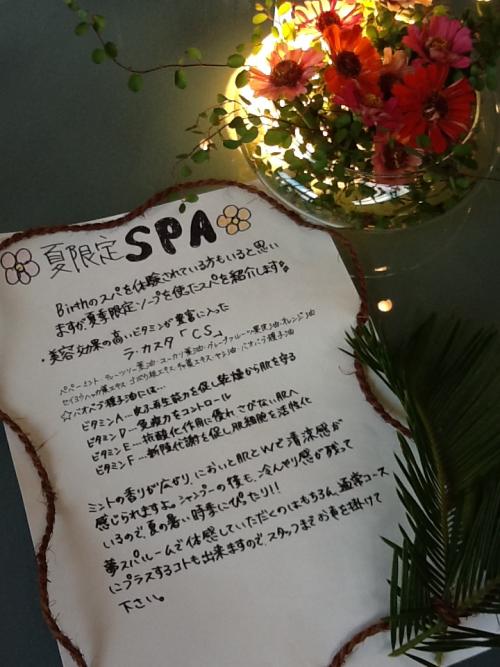 夏限定SPA
Birthのスパを体験されている方もいると思い
ますが夏季限定ソープを使たスパを紹介します
・美容効果の高いビタミンが豊富に入った
ラ・カスタ「CS」
ペパーミント ティーツリー葉油・ユーカリ葉油・グレープフルーツ果皮油・オレンジ油
セイヨウハッカ葉エキス ゴボウ根エキス チャ葉エキス・ヤシ油・バオバブ種子油
☆バオバブ種子油には…
ビタミンA…皮ふ再生能力を促し乾燥から肌を守る
ビタミンD…免疫力をコントロール
ビタミンE…抗酸化作用に優れさびない肌へ
ビタミンF…新陳代謝を促し肌細胞を活性化
ミントの香りが広がり、においと肌とWで清涼感が
感じられますよ。シャンプーの後も、冷んやり感が残って
いるので、夏の暑い時季にぴったり!!
夢スパルームで体感していただくのはもちろん、通常コース
にプラスするコトも出来ますので、スタッフまでお声を掛けて
下さい。